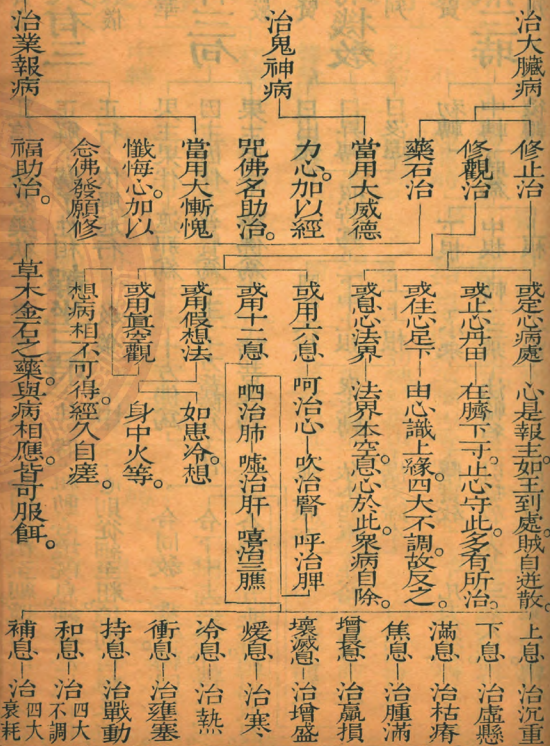 治大臟病
治鬼神病
治業報病
修止治
修觀治
藥石治
當用大威德
力心。加以經
咒佛名助治。
當用大慚愧
懺悔心加以
念佛發願修
福助治。
或定心病處
心是報主如王到處賊自迸散。
或止心丹田
在臍下寸。止心守此。多有所治。
或住心足下
由心識上緣。四大不調。故反之。
或息心法界
法界本空。息心於此。衆病自除。
或用六息
呵治心
吹治腎
呼治脾
呬治肺
噓治肝
嘻治三膲
或用十二息
或用假想法
如患冷想
身中火等。
或用眞空觀
想病相不可得。經久自瘥。
草木金石之藥。與病相應。皆可服餌。
上息
治沉重
下息
治虛懸
滿息
治枯瘠
焦息
治腫滿
增長息
治羸損
壞滅息
治增盛
煖息
治寒
冷息
治熱
衝息
治壅塞
持息
治戰動
和息
治四大不調
補息
治四大衰耗